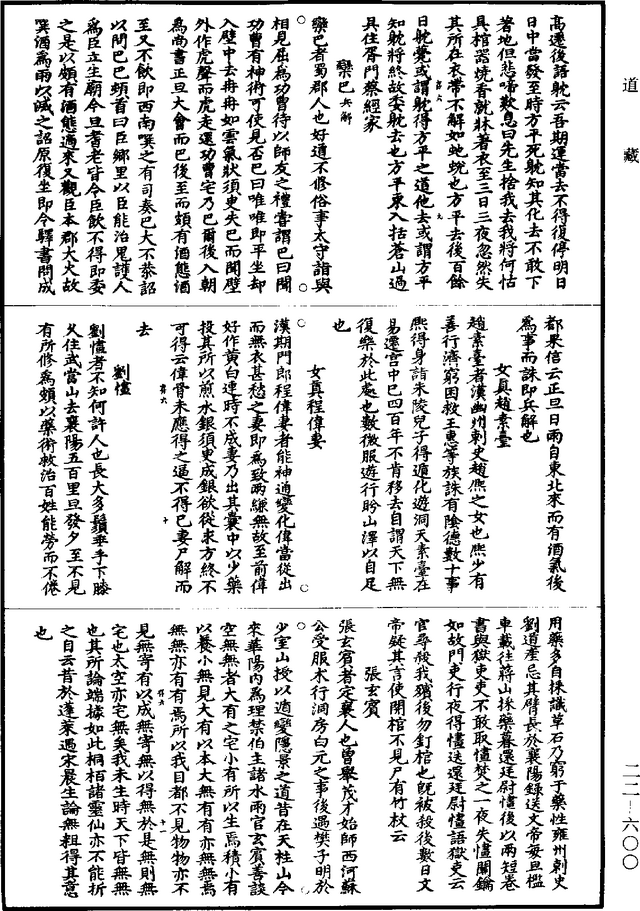 道藏
高還後語躭云吾期運當去不得復停明日
日中當發至時方平死躭知其化去不敢下
著地但悲啼歎息曰先生捨我去我將何怙
具棺器燒香就牀著衣至三日三夜忽然失
其所在衣帶不解如蛇蛻也方平去後百餘
日躭薨或謂躭得方平之道他去或謂方平
知躭將終故委躭去也方平東入括蒼山過
具住胥門蔡經家
欒巴兵解
欒巴者蜀郡人也好道不修俗事太守詣與
相見屈為功曹待以師友之禮嘗謂巴曰聞
功曹有神術可使見否巴曰唯唯即平坐却
入壁中去冉冉如雲氣狀須臾失巴而聞壁
外作虎聲而虎走還功曹宅乃巴爾後入朝
為尚書正旦大會而巴後至而頗有酒態酒
至又不飲即西南噀之有司奏巴大不恭詔
以問巴巴頓首曰臣鄉里以臣能治鬼護人
為臣立生廟今旦耆老皆令臣飲不得即委
之是以頗有酒態過來又觀臣本郡大火故
噀酒為雨以滅之詔原復坐即令驛書問成
都果信云正旦日雨自東北來而有酒氣後
為事而誅即兵解也
女真趙素臺
趙素臺者漢幽州刺史趙熙之女也熙少有
善行濟窮困救王惠等族誅有陰德數十事
熙得身詣朱陵兒子得遁化遊洞天素臺在
易遷宮中已四百年不肯移去自謂天下無
復樂於此處也數微服遊行盻山澤以自足
也
女真程偉妻
漢期門郎程偉妻者能神通變化偉當從出
而無衣甚愁之妻即為致兩縑無故至前偉
好作黃白連時不成妻乃出其囊中以少藥
投其所以煎水銀須臾成銀欲從求方終不
可得云偉骨未應得之逼不得已妻尸解而
去
劉㦬
劉㦬者不知何許人也長大多鬚垂手下膝
久住武當山去襄陽五百里旦發夕至不見
有所修為頗以藥術救治百姓能勞而不倦
用藥多自採識草石乃窮于藥性雍州刺史
劉道產忌其臂長於襄陽錄送文帝每旦檻
車載往蔣山採藥暮還廷尉㦬後以兩短卷
書與獄吏吏不敢取㦬焚之一夜失㦬關鑰
如故門吏行夜得㦬送還廷尉㦬語獄吏云
官尋殺我殯後勿釘棺也既被殺後數日文
帝疑其言使開棺不見尸有竹杖云
張玄賓
張玄賓者定襄人也曾舉茂才始師西河蘇
公受服术行洞房白元之事後遇樊子明於
少室山授以遁變隱景之道昔在天柱山今
來華陽內為理禁伯主諸水雨官玄賓善談
空無無者大有之宅小有所以生焉積小有
以養小無見大有以本大無有有亦無無焉
無無亦有有焉所以我目都不見物物亦不
見無寄有以成無寄無以得無於是無則無
宅也太空亦宅無矣我未生時天下皆無無
也其所論端據如此桐栢諸靈仙亦不能折
之自云昔於蓬萊遇宋晨生論無粗得其意
也
二二—六〇〇